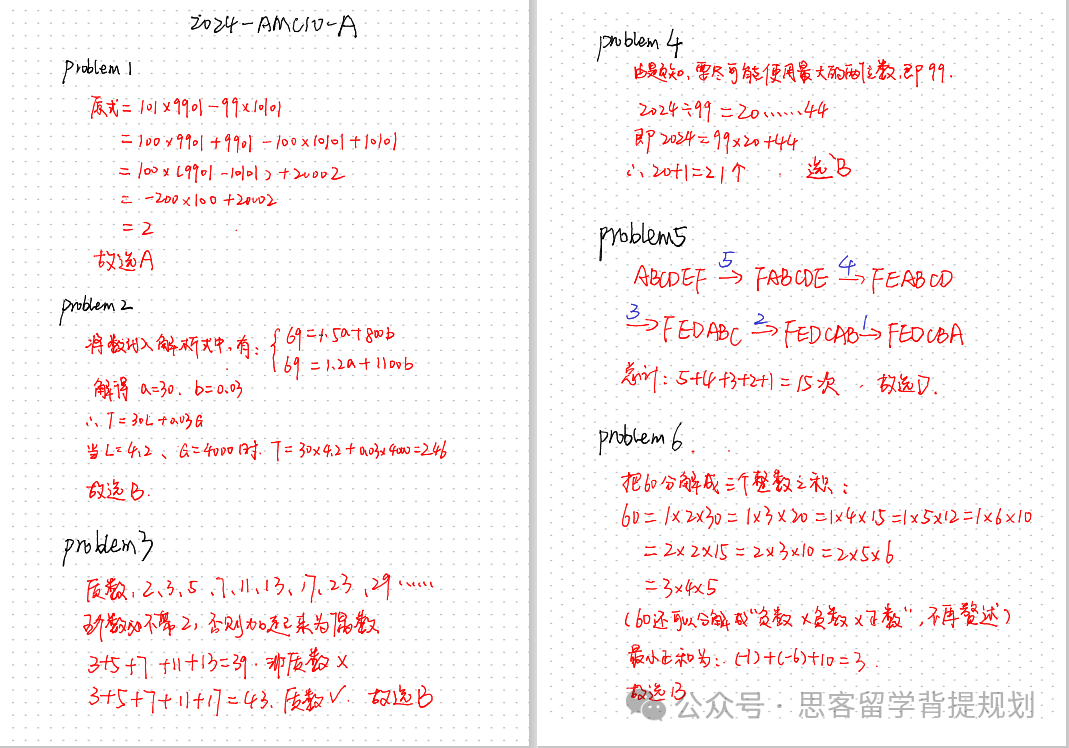 2024-AMC10-A
problem 1
原式=101×9901-99×10101
=100×9901+9901-100×10101+10101
=100×(9901-10101)+20002
=-200×100+20002
=2
故选A
problem 2
将数代入解析式中,有:{69=1.5a+800b
69=1.2a+1100b
解得 a=30, b=0.03
∴T=30L+0.03G
当L=4.2、G=4000时,T=30×4.2+0.03×4000=246
故选B.
problem 3
质数:2、3、5、7、11、13、17、23、29……
数 不 2,否则加起来为偶数
3+5+7+11+13=39.非质数×
3+5+7+11+17=43.质数√. 故选B
problem 4
由题知,要尽可能使用最大的两位数,即99.
2024÷99=20……44
即2024=99×20+44
∴20+1=21个. 选B
problem5
ABCDEF 5→ FABCDE 4→ FEABCD
3→ FEDABC 2→ FEDCAB 1→ FEDCBA
总计:5+4+3+2+1=15次. 故选D.
problem 6
把60分解成三个整数之积:
60=1×2×30=1×3×20=1×4×15=1×5×12=1×6×10
=2×2×15=2×3×10=2×5×6
=3×4×5
(60还可以分解成"负数×负数×正数",不再赘述)
最小正和为:(-1)+(-6)+10=3.
故选B
公众号·思客留学背提规划